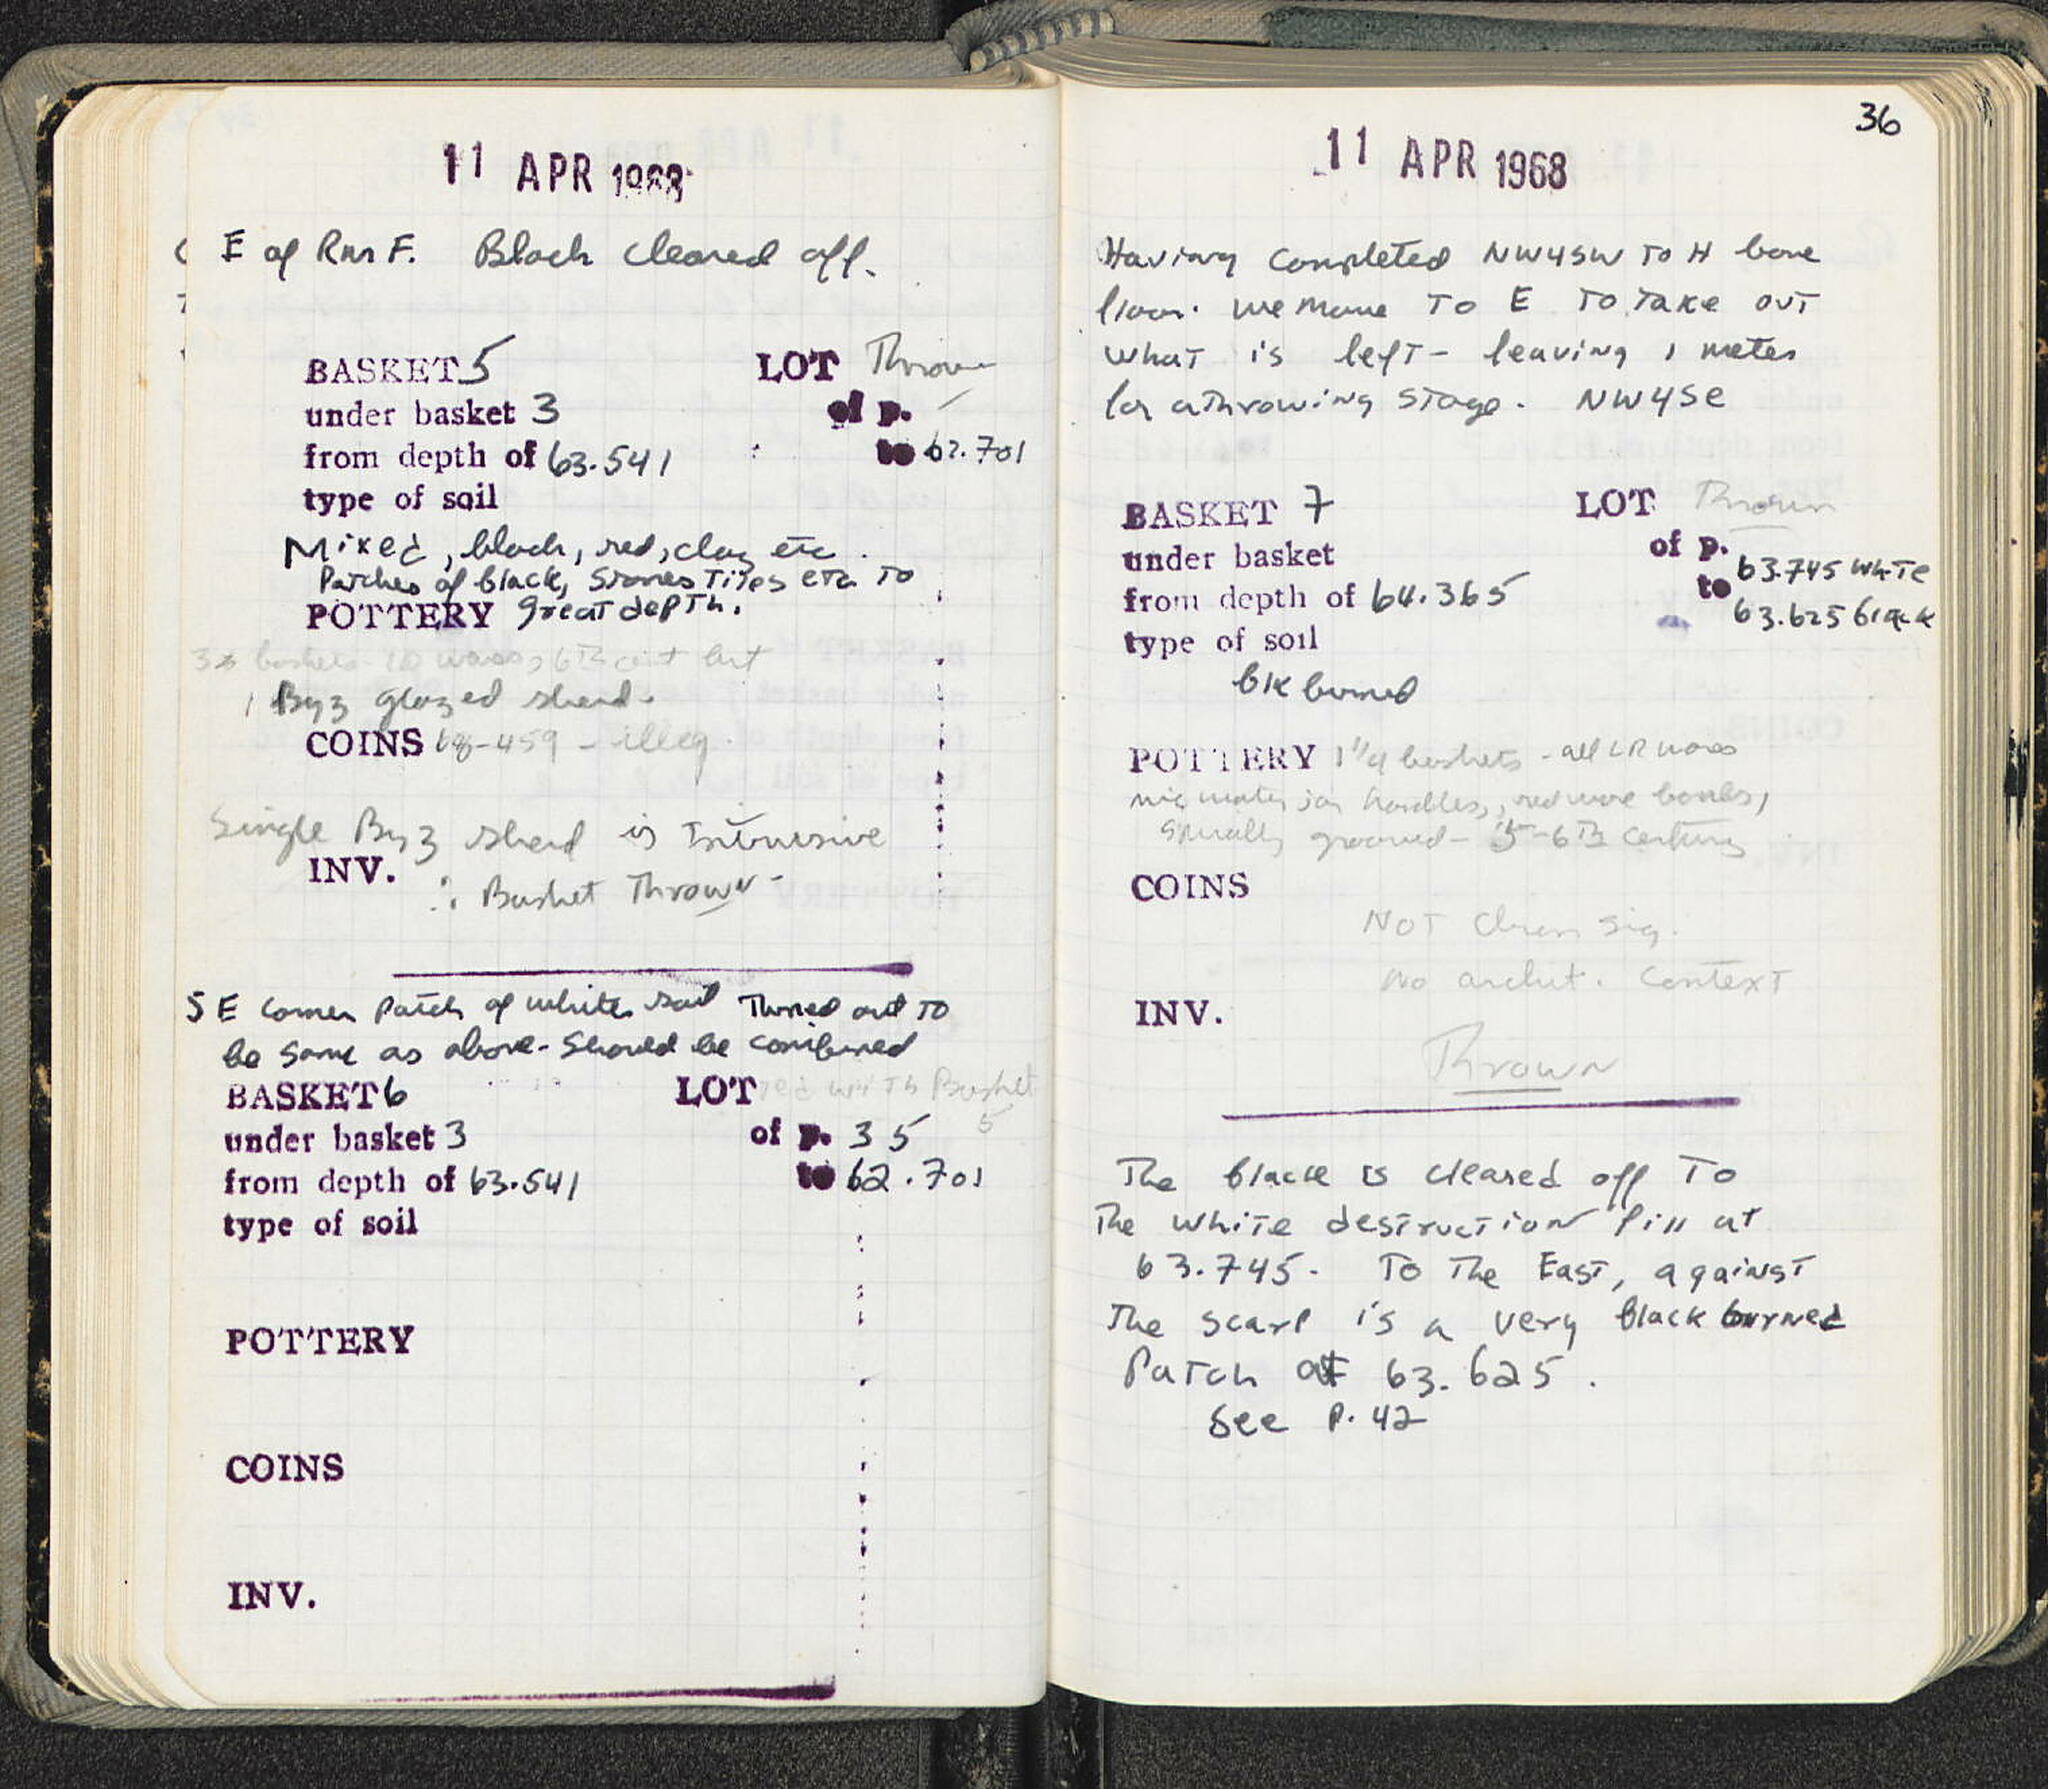 11 APR 1968
E of Rm F. Black cleared off.
BASKET 5 LOT Thrown
under basket 3 of p.
from depth of 63.541 to 62.701
type of soil
Mixed, black, red, clay etc.
Patches of black, stones tiles etc to
POTTERY great depth.
baskets LR wares, 6th cent but
1 Byz glazed sherd.
COINS 68-459 - illeg.
Single Byz sherd is Intrusive
INV. ∴ Basket Thrown -
SE corner patch of white soil Turned out to
be same as above - Should be combined
BASKET 6 LOT with Basket
5
under basket 3 of p. 35
from depth of 63.541 to 62.701
type of soil
POTTERY
COINS
INV.
36
11 APR 1968
Having completed NW4SW to H bone
floor. We move to E to take out
what is left - leaving 1 meter
for a throwing stage. NW4SE
BASKET 7 LOT Thrown
under basket of p.
from depth of 64.365 to 63.745 white
63.625 black
type of soil
blk burned
POTTERY 1 1/4 baskets - all LR wares
mic water jar handles, red ware bowls,
spirally grooved - 5-6th century
COINS
Not chron sig.
No archit. context
INV.
Thrown
The black is cleared off to
the white destruction fill at
63.745. To the East, against
the scarp is a very black burned
patch at 63.625.
See p. 42